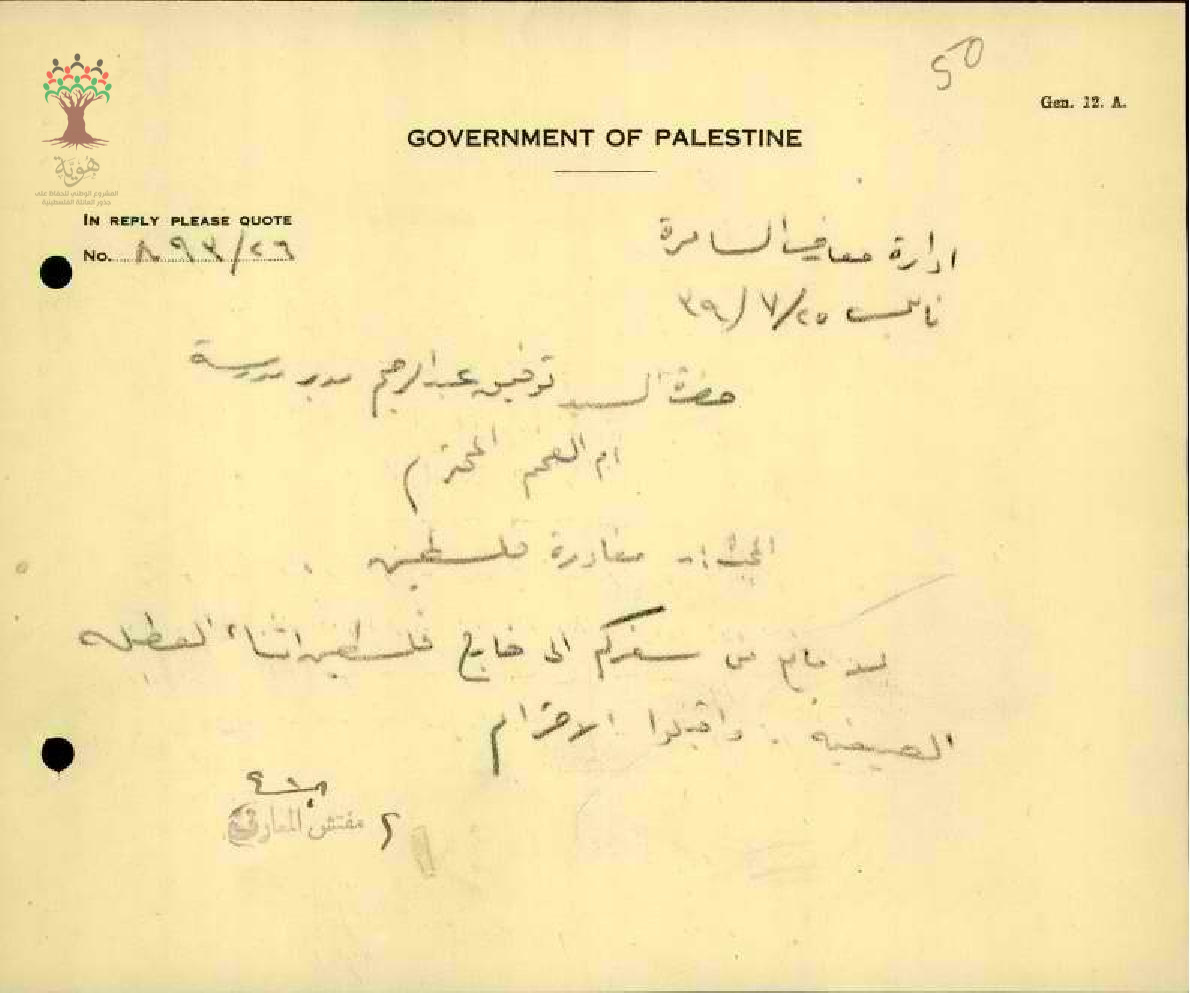 50
Gen. 12. A.
GOVERNMENT OF PALESTINE
هوية
المشروع الوطني للحفاظ على
جذور العائلة الفلسطينية
IN REPLY PLEASE QUOTE
No. ٨٩٣/٢٦
ادارة معارف السامرة
نابلس ٢٥/٧/٣٩
حضرة السيد توفيق عبد الرحيم مدير مدرسة
ام الفحم المحترم
مغادرة فلسطين
لا مانع من سفركم الى خارج فلسطين اثناء العطله
الصيفيه . واقبلوا الاحترام
مفتش المعارف